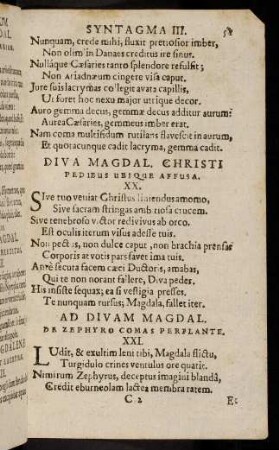 SYNTAGMA III.
Nunquam, crede mihi, fluxit pretiosior imber,
Non olim in Danaes creditus ire sinus.
Nullaque Cæsaries tanto splendore refulsit;
Non Ariadnæum cingere visa caput.
Jure suis lacrymas colegit avara capillis,
Ut foret hoc nexu major utrique decor.
Auro gemma decus, gemmæ decus additur aurum:
Aurea Cæsaries, gemmeus imber erat.
Nam coma multifidum rutilans flavescit in aurum,
Et quotacunque cadit lacryma, gemma cadit.
DIVA MAGDAL. CHRISTI
PEDIBUS UBIQUE AFFUSA.
XX.
Sive tuo veniat Christus
Sive sacram stringas ambitiosa crucem.
Sive tenebroso victor redivivus ab orco.
Est oculis iterum visus adesse tuis.
Non pectus, non dulce caput, non brachia prensas
Corporis at votis pars favet ima tuis.
Ante secura facem cæci Ductoris, amabas,
Qui te non norant fallere, Diva pedes.
His insiste sequax; ea si vestigia presses,
Te nunquam rursus, Magdala, fallet iter.
AD DIVAM MAGDAL.
DE ZEPHYRO COMAS PERFLANTE.
XXI.
Ludit, & exultim leni tibi, Magdala flictu,
Turgidulo crines ventulus ore quatit.
Nimirum Zephyrus, deceptus imagini blandâ,
Credit eburneolam lactea membra ratem.
C 2 Et